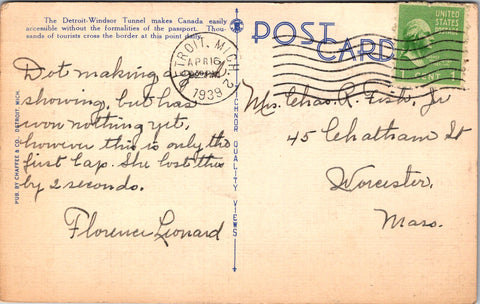 The Detroit-Windsor Tunnel makes Canada easily
accessible without the formalities of the passport. Thou-
sands of tourists cross the border at this point daily.
Dot making a good
showing, but has
won nothing yet,
however this is only the
first lap. She lost this
by 2 seconds.
Florence Leonard
PUB. BY CHAFFEE & CO. DETROIT, MICH.
TECHNOR QUALITY VIEWS
POST CARD
DETROIT, MICH. 2
APR 16
1939
UNITED STATES
POSTAGE
1 CENT 1
Mrs. Chas. R. Fish, Jr
45 Chatham St
Worcester,
Mass.